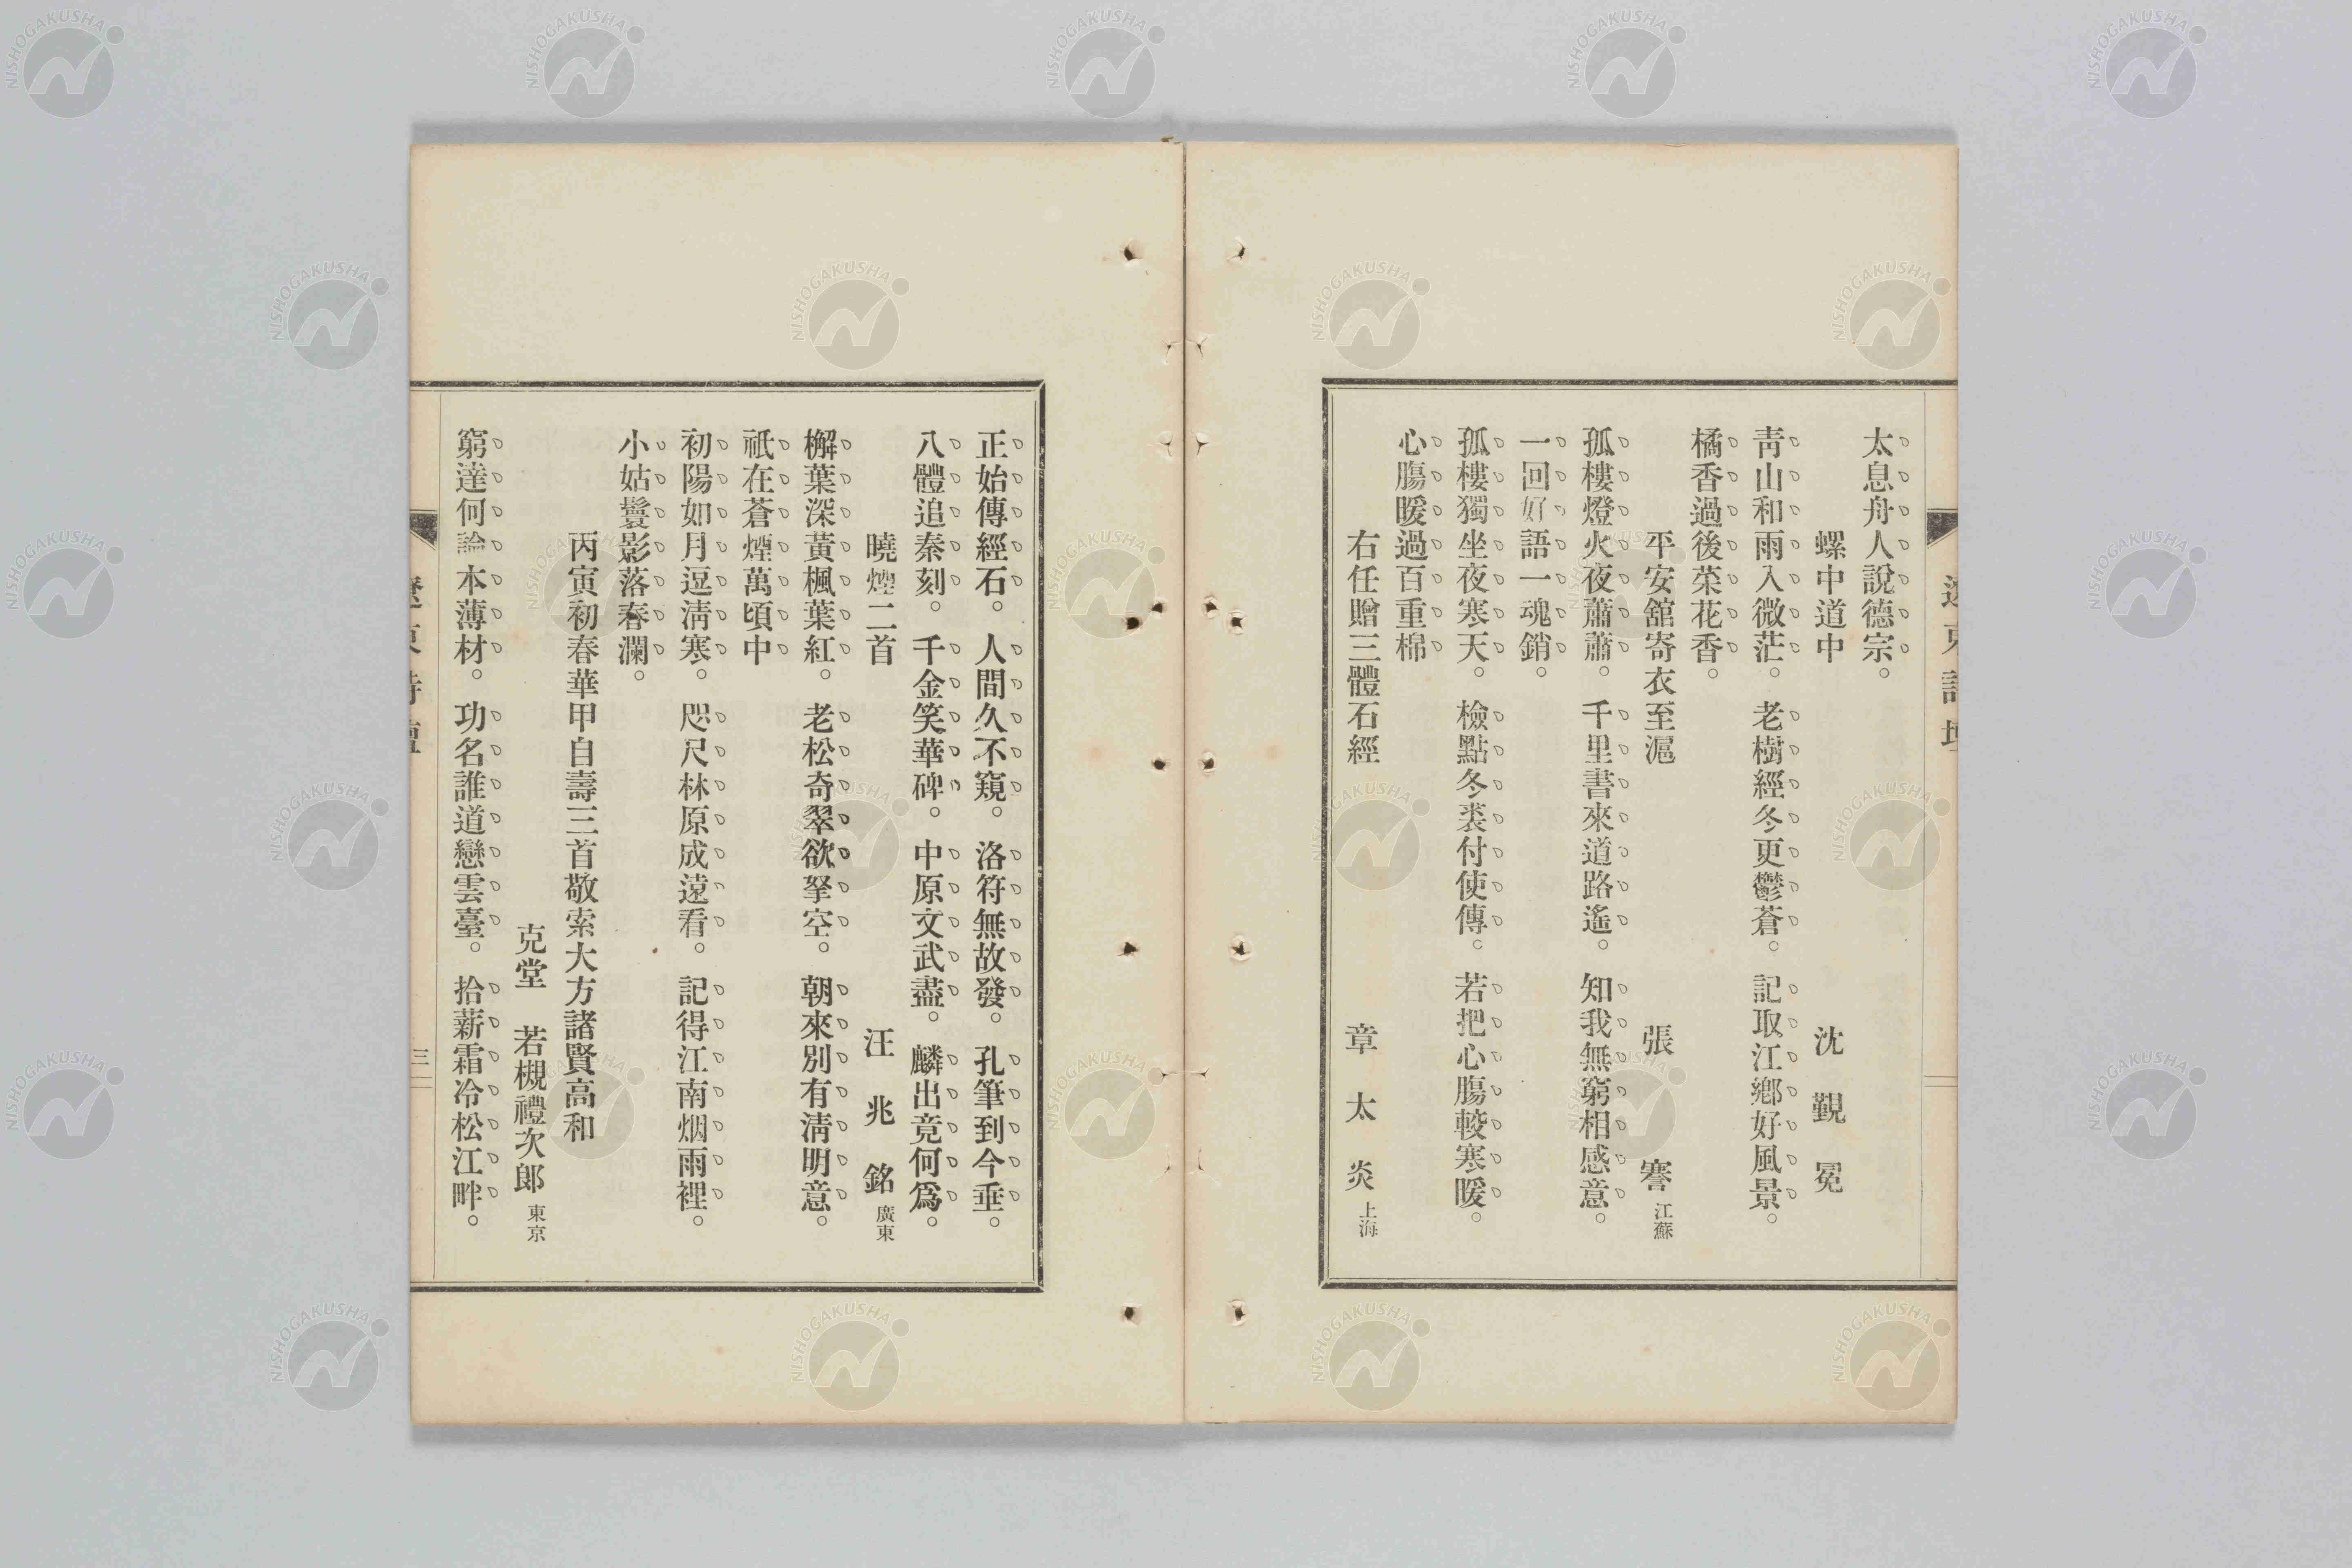 遼東詩壇
太息舟人說德宗。
螺中道中　沈觐冕
靑山和雨入微茫。老樹經冬更鬱蒼。記取江鄉好風景。
橘香過後菜花香。
平安舘寄衣至滬　張謇 江蘇
孤樓燈火夜蕭蕭。千里書來道路遙。知我無窮相感意。
一回好語一魂銷。
孤樓獨坐夜寒天。檢點冬裘付使傳。若把心膓較寒暖。
心膓暖過百重棉
右任贈三體石經　章太炎 上海
正始傳經石。人間久不窺。洛符無故發。孔筆到今垂。
八體追秦刻。千金笑華碑。中原文武盡。麟出竟何爲。
曉煙二首　汪兆銘 廣東
檞葉深黃楓葉紅。老松奇翠欲拏空。朝來別有淸明意。
祇在蒼煙萬頃中
初陽如月逗淸寒。咫尺林原成遠看。記得江南烟雨裡。
小姑鬟影落春瀾。
丙寅初春華甲自壽三首敬索大方諸賢高和
克堂　若槻禮次郎 東京
窮達何論本薄材。功名誰道戀雲臺。拾薪霜冷松江畔。
遼東詩壇
三
NISHOGAKUSHA